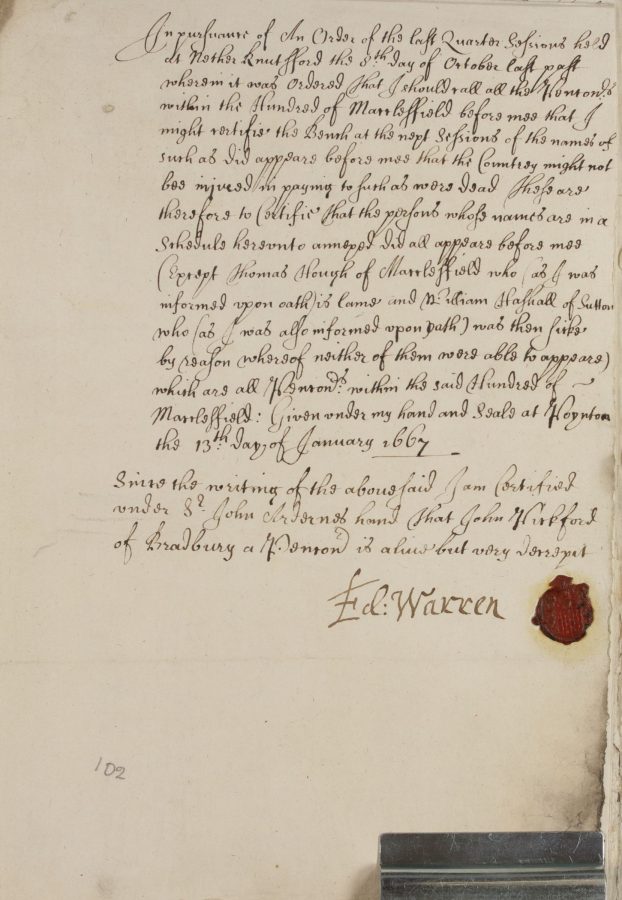 In pursuance of An Order of the last Quarter Sessions held
at Nether Knutsford the 8th day of October last past
wherein it was Ordered That I should call all the Pencon.rs
within the Hundred of Macclesfield before mee that I
might certifie the Bench at the next Sessions of the names of
such as did appeare before mee that the Countrey might not
bee injured in paying to such as were dead These are
therefore to Certifie That the persons whose names are in a
Schedule hereunto annexed did all appeare before mee
(Except Thomas Hough of Macclesfield who (as I was
informed vpon oath) is lame and William Hassall of Sutton
who (as I was also informed vpon oath) was then sicke
by reason whereof neither of them were able to appeare)
which are all Pencon.rs within the said Hundred of ~
Macclesfield: Given under my hand and Seale at Poynton
the 13.th day of January 1667
Since the writing of the abovesaid I am Certified
under S.r John Ardernes hand That John Pickford
of Bradbury a Pencon.r is alive but very decrepit
Ed: Warren
102